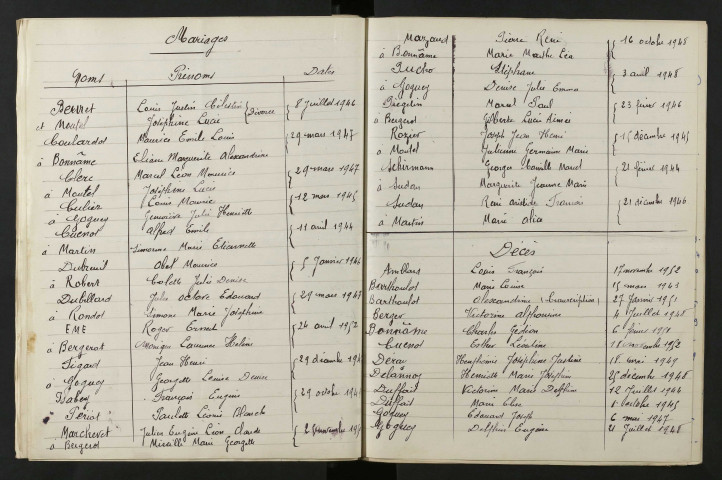 Mariages
Noms Prénoms Dates
Berret Louis Justin Célestin Divorce 8 juillet 1946
et Moutel Joséphine Lucie
Coulardot Maurice Emile Louis 29 mars 1947
à Bonname Eliane Marguerite Alexandrine
Clerc Marcel Léon Maurice 29 mars 1947
à Moutel Joséphine Lucie
Culier Louis Maurice 12 mai 1945
à Goguey Geneviève Julie Henriette
Cuenot Alfred Emile 11 avril 1944
à Martin Simonne Marie Etiennette
Dubreuil Abel Maurice 5 janvier 1946
à Robert Colette Julie Denise
Dubillard Jules Octave Edouard 29 mars 1947
à Rondot Simone Marie Joséphine
EME Roger Ernest 26 avril 1952
à Bergerot Monique Carmen Hélène
Jean Henri 29 décembre
à Goguey Georgette Louise Denise
Babey François Eugène 29 octobre
Périot Paulette Léonie Blanche
Marchevet Julien Eugène Léon Claude 2
à Bergerot Mireille Marie Georgette
Marzand Pierre René 16 octobre 1948
à Bonnâme Marie Marthe Léa
Stéphane 3 avril 1948
à Goguey Denise Julie Emma
Marcel Paul 23 février 1946
à Bergerot Lucie Aimée
Rozier Joseph Jean Henri 15 décembre 1945
à Moutel Julienne Germaine Marie
Schirmann Georges Camille Marcel 21 février 1944
à Sudan Marguerite Jeanne Marie
Sudan René Aristide François 21 décembre 1946
à Martin Marie Alia
Décès
Louis François 17 novembre 1952
Barthoulot Marie Louise 15 mars 1943
Barthoulot Alexandrine (transcription) 27 janvier 1951
Berger Victorine Alphonsine 4 juillet 1948
Bonnâme Charles Gédéon 6 février
Cuenot Esther Léontine 18 novembre 1952
Joséphine Justine 18 mai 1949
Delannoy Henriette Marie Joséphine 25 décembre 1948
Duffait Victorine Marie Delphine 12 juillet 1944
Duffait Marie 8 octobre 1945
Goguey Edouard Joseph 6 mai 1947
Goguey Delphin Eugène 21 juillet 1948